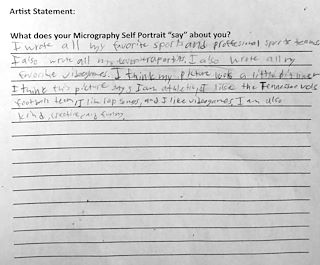 Artist Statement:
What does your Micrography Self Portrait "say" about you?
I wrote all my favorite sports and professional sports teams
I also wrote all my favorite rap artists. I also wrote all my
favorite videogames. I think my picture looks a little different
I think this picture says I am athletic, I like the Tennessee vols
football team, I like rap songs, and I like videogames, I am also
kind, creative, and funny.